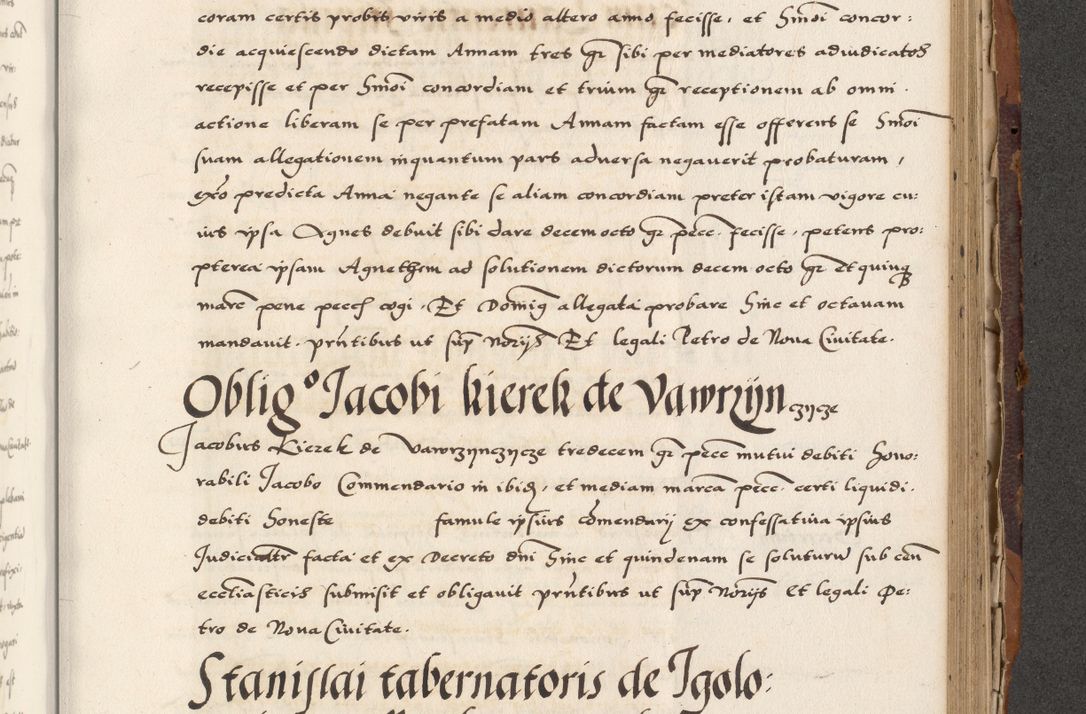 coram certis probis viris a medio altero anno fecisse, et Hmoi concor:
die acquiescendo dictam Annam tres gr sibi per mediatores adiudicatos
recepisse et per Hmoi concordiam et trium gr receptionem ab omni
actione liberam se per prefatam Annam factam esse offerens se Hmoi
suam allegationem inquantum pars adversa negaverit probaturam,
exo predicta Anna negante se aliam concordiam preter istam vigore cu:
ius ipsa Agnes debuit sibi dare decem octo gr pecc. fecisse, petens pro:
pterea ipsam Agnethem ad solutionem dictorum decem octo gr et quinq
marc pene pecc cogi. Et Doming allegata probare Hinc et octavam
mandavit. pntibus ut sup Norijs Et legali Petro de Nova Civitate.
Oblig° Jacobi kierek de Vawrzijn czycze
Jacobus Kierek de Vawrzynczycze tredecem gr pecc mutui debiti Hono:
rabili Jacobo Commendario in ibid, et mediam marca pecc. certi liquidi.
debiti Honeste famule ipsius comendarij ex confessativa ipsius
Judicialr facta et ex Decreto dni Hinc et quindenam se soluturu sub cen
eccliasticis submisit et obligavit pntibus ut sup Norijs Et legali Pe:
tro de Nova Civitate.
Stanislai tabernatoris de Igolo: